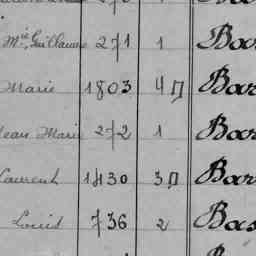 Mie Guillaume 271 1 Bar
Marie 1803 4 D Bar
Jean Marie 272 1 Bar
Laurent 1430 3 D Bar
Louis 736 2 Bas